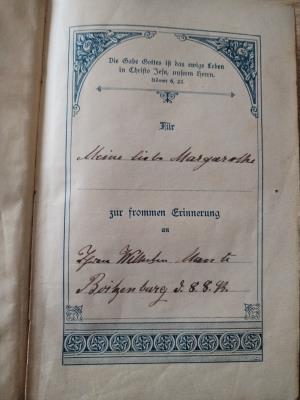 Die Gabe Gottes ist das ewige Leben
in Christo Jesu, unserm Herrn.
Römer 6, 23.
Für
Meine liebe Margarethe
zur frommen Erinnerung
an
Wilhelm
Boitzenburg d. 8. 8.